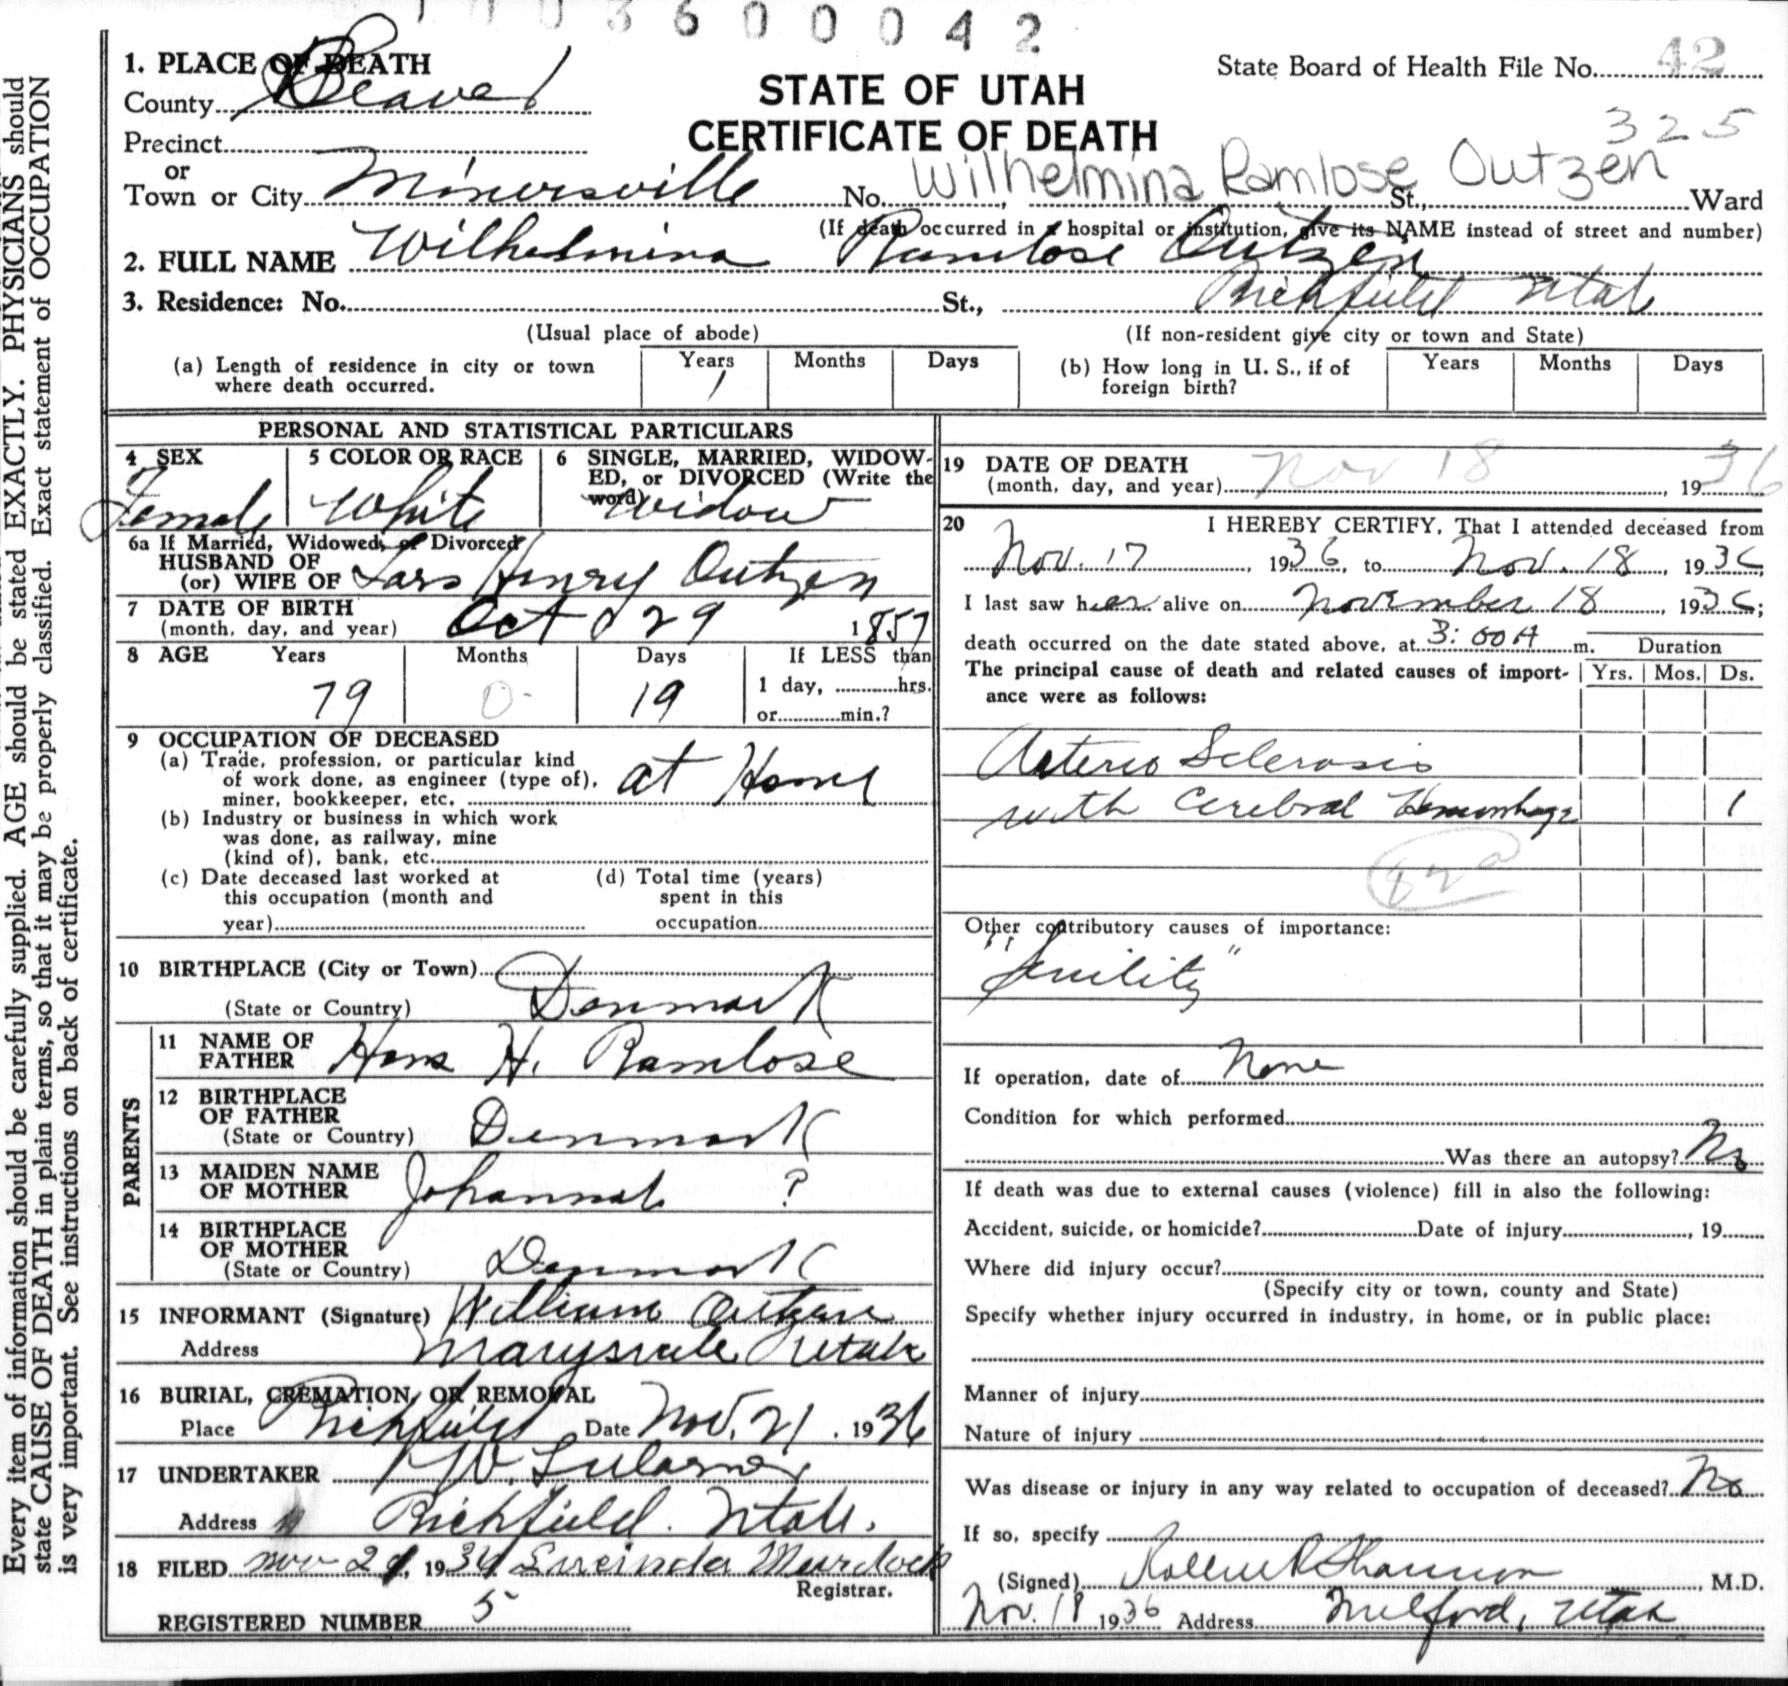 1 0 0 3 6 0 0 0 4 2
1. PLACE OF DEATH
County Beaver
Precinct
or
Town or City Minersville No. St., Ward
STATE OF UTAH
CERTIFICATE OF DEATH
State Board of Health File No. 42
325
Wilhelmina Ramlose Outzen
(If death occurred in a hospital or institution, give its NAME instead of street and number)
2. FULL NAME Wilhelmina Ramlose Outzen
3. Residence: No. St., Richfield Utah
(Usual place of abode) (If non-resident give city or town and State)
(a) Length of residence in city or town where death occurred. Years 1 Months Days
(b) How long in U. S., if of foreign birth? Years Months Days
PERSONAL AND STATISTICAL PARTICULARS
4 SEX Female
5 COLOR OR RACE White
6 SINGLE, MARRIED, WIDOW-
ED, or DIVORCED (Write the
word) Widow
6a If Married, Widowed, or Divorced
HUSBAND OF
(or) WIFE OF Lars Henry Outzen
7 DATE OF BIRTH
(month, day, and year) Oct 29 1857
8 AGE Years Months Days If LESS than
79 0 19 1 day, hrs.
or min.?
9 OCCUPATION OF DECEASED
(a) Trade, profession, or particular kind
of work done, as engineer (type of),
miner, bookkeeper, etc. at Home
(b) Industry or business in which work
was done, as railway, mine
(kind of), bank, etc.
(c) Date deceased last worked at
this occupation (month and
year)
(d) Total time (years)
spent in this
occupation
10 BIRTHPLACE (City or Town)
(State or Country) Denmark
PARENTS
11 NAME OF
FATHER Hans H. Ramlose
12 BIRTHPLACE
OF FATHER
(State or Country) Denmark
13 MAIDEN NAME
OF MOTHER Johannah ?
14 BIRTHPLACE
OF MOTHER
(State or Country) Denmark
15 INFORMANT (Signature) William Outzen
Address Marysvale Utah
16 BURIAL, CREMATION, OR REMOVAL
Place Richfield Date Nov. 21, 1936
17 UNDERTAKER
Address Richfield. Utah.
18 FILED Nov 21, 1936 Lucinda Murdock
Registrar.
REGISTERED NUMBER 5
19 DATE OF DEATH
(month, day, and year) Nov 18, 1936
20 I HEREBY CERTIFY, That I attended deceased from
Nov. 17, 1936, to Nov. 18, 1936
I last saw her alive on November 18, 1936;
death occurred on the date stated above, at 3:00 A m.
Duration
The principal cause of death and related causes of import-
ance were as follows: Yrs. Mos. Ds.
Arterio Sclerosis
with Cerebral Hemorrhage 1
82a
Other contributory causes of importance:
"Senility"
If operation, date of None
Condition for which performed
Was there an autopsy? No
If death was due to external causes (violence) fill in also the following:
Accident, suicide, or homicide? Date of injury, 19
Where did injury occur?
(Specify city or town, county and State)
Specify whether injury occurred in industry, in home, or in public place:
Manner of injury
Nature of injury
Was disease or injury in any way related to occupation of deceased? No
If so, specify
(Signed) Shannon, M.D.
Nov. 18 1936 Address Milford, Utah
Every item of information should be carefully supplied. AGE should be stated EXACTLY. PHYSICIANS should
state CAUSE OF DEATH in plain terms, so that it may be properly classified. Exact statement of OCCUPATION
is very important. See instructions on back of certificate.